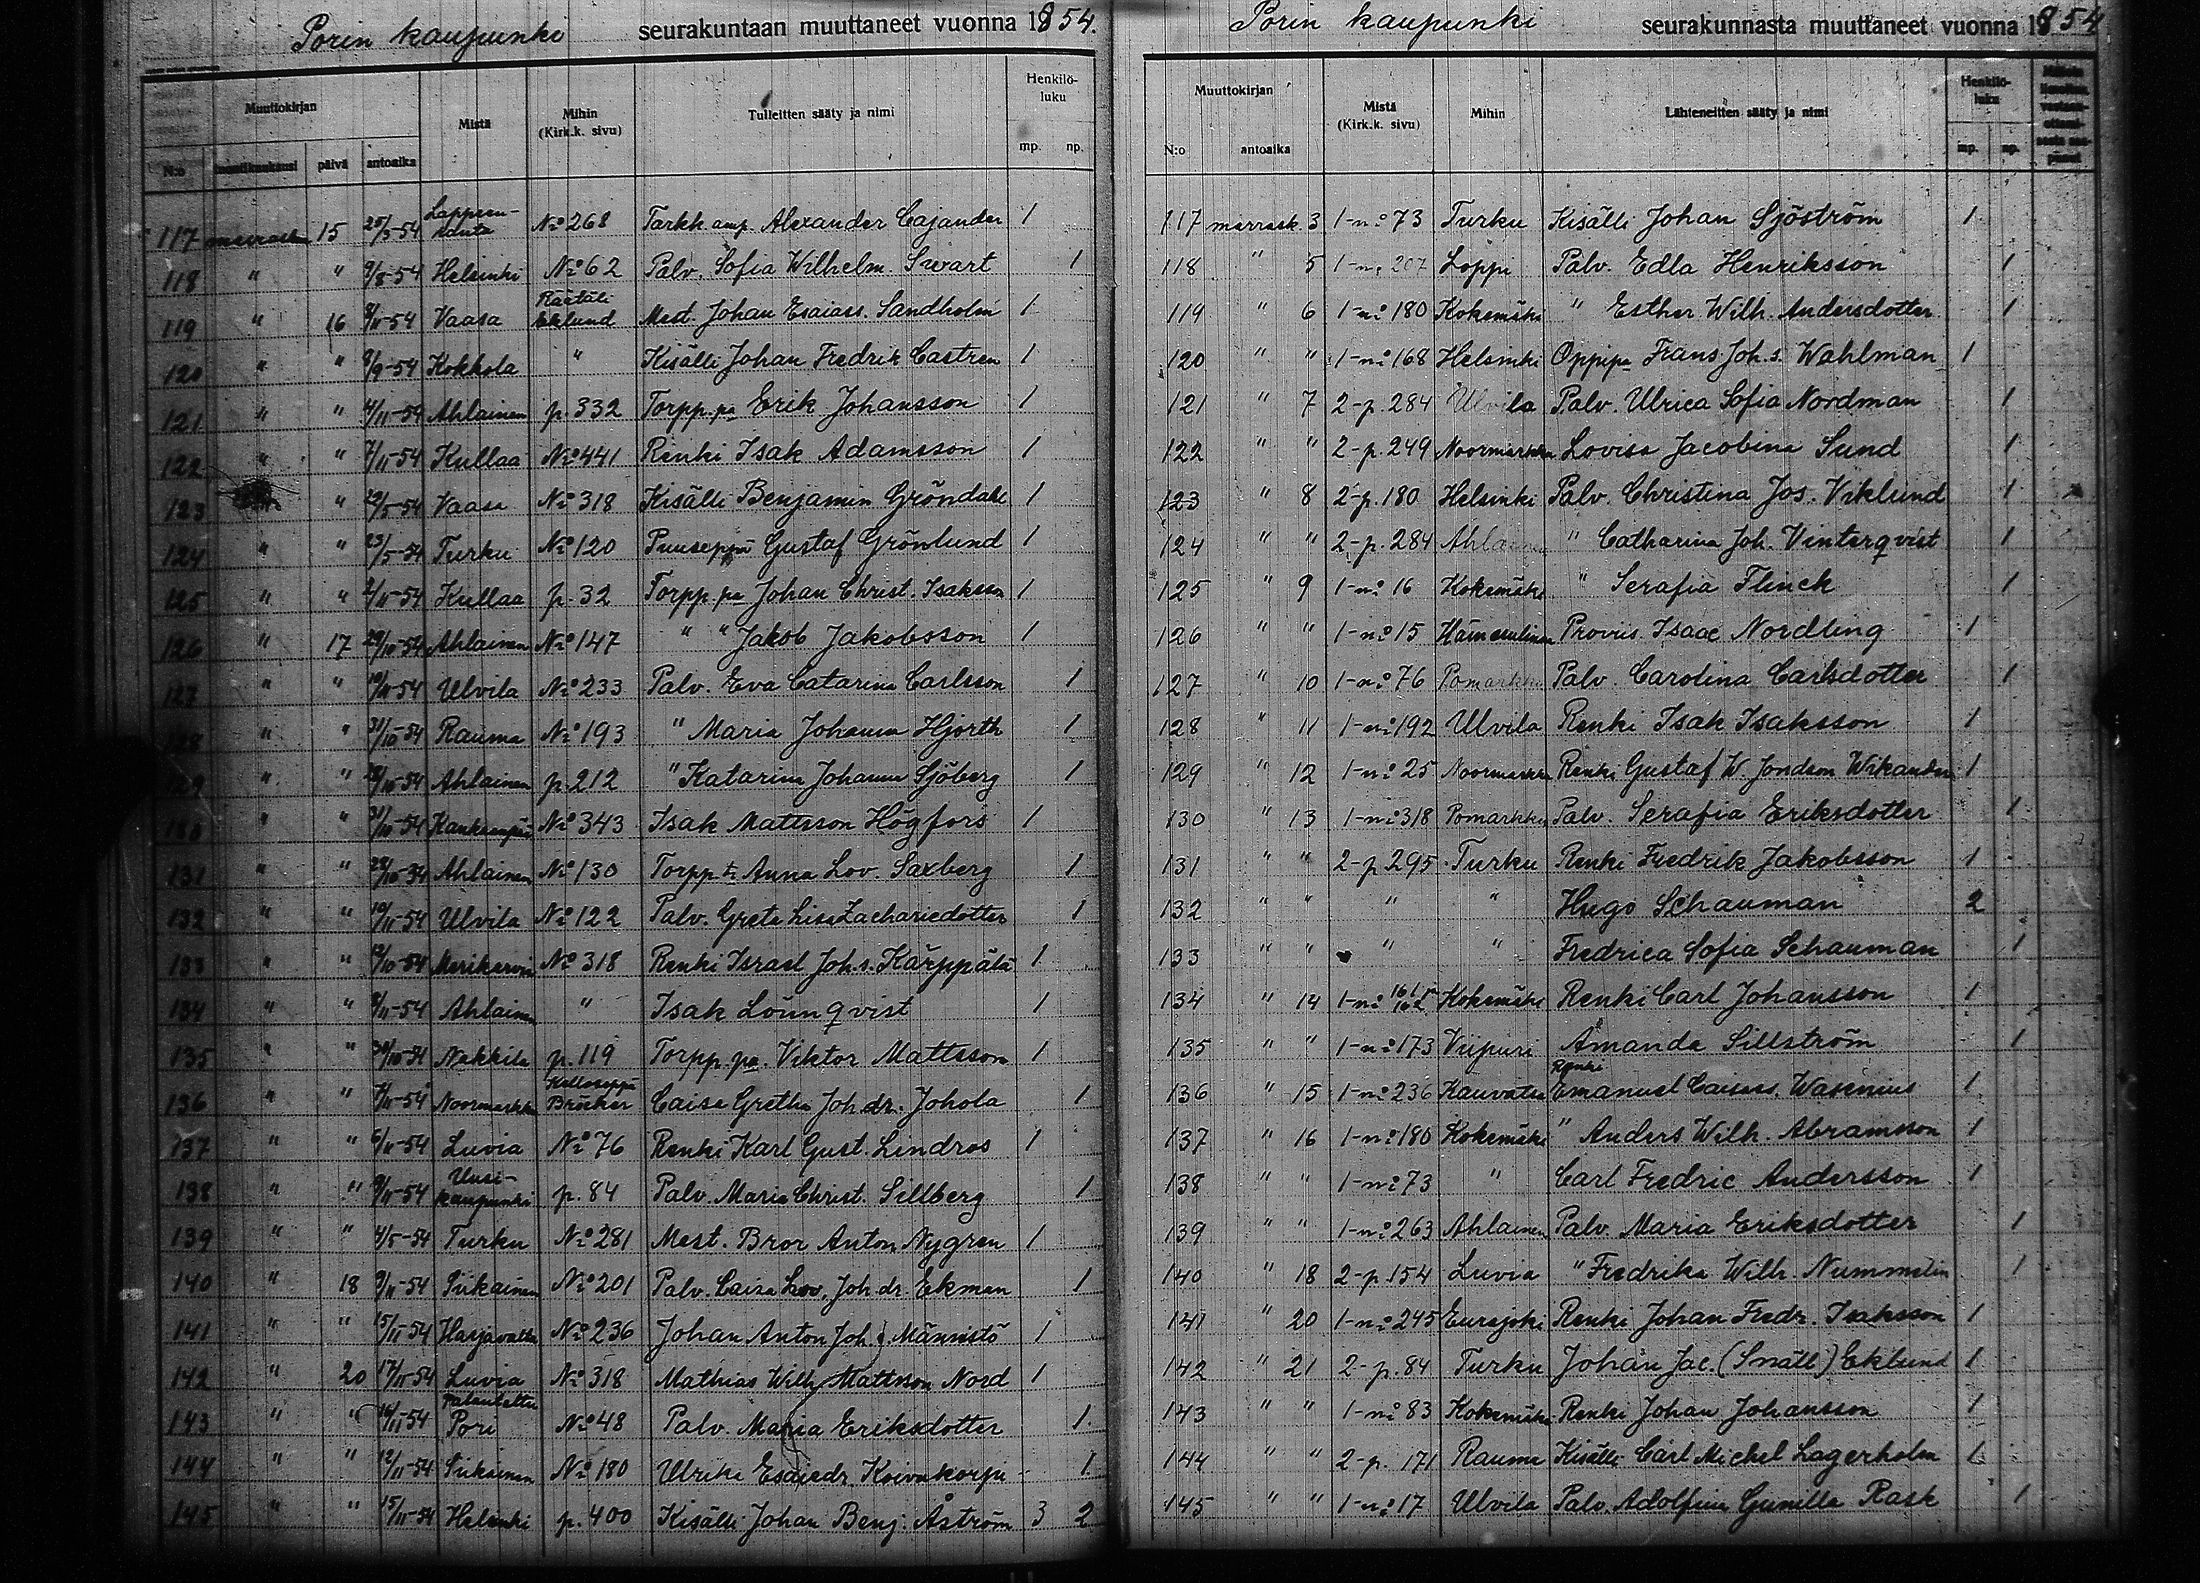 Porin kaupunki seurakuntaan muuttaneet vuonna 1854.
Muuttokirjan Mistä Mihin (Kirk.k. sivu) Tulleitten sääty ja nimi Henkilö-luku
N:o päivä antoaika mp. np.
117 marrask. 15 25/5-54 Lappeen-ranta No 268 Tarkk. amp. Alexander Cajander 1
118 " " 9/8-54 Helsinki No 62 Palv. Sofia Wilhelm. Swart 1
119 " 16 Vaasa Räätäli Eklund Mest. Johan Esaiass. Sandholm 1
120 " " 8/9-54 Kokkola " Kisälli Johan Fredrik Castren 1
121 " " 4/11-54 Ahlainen p. 332 Torpp. pa Erik Johansson 1
122 " " 7/11-54 Kullaa No 441 Renki Isak Adamsson 1
123 " 29/5-54 Vaasa No 318 Kisälli Benjamin Gröndahl 1
124 " " 23/5-54 Turku No 120 Puuseppä Gustaf Grönlund 1
125 " " 2/11-54 Kullaa p. 32 Torpp. pa Johan Christ. Isaksson 1
126 " 17 29/10-54 Ahlainen No 147 " " Jakob Jakobsson 1
127 " " 10/11-54 Ulvila No 233 Palv. Eva Catarina Carlsson 1
128 " " 31/10-54 Rauma No 193 " Maria Johanna Hjorth 1
129 " " 28/10-54 Ahlainen p. 212 " Katarina Johanna Sjöberg 1
130 " " 31/10-54 Kankaanpää No 343 Isak Mattsson Högfors 1
131 " " 28/10-54 Ahlainen No 130 Torpp. t. Anna Lov. Saxberg 1
132 " " 10/11-54 Ulvila No 122 Palv. Greta Lisa Zachariedotter 1
133 " " Merikarvia No 318 Renki Israel Joh.s. Kärppälä 1
134 " " Ahlainen " Isak Lönnqvist 1
135 " " 30/10-54 Nakkila p. 119 Torpp. pa. Viktor Mattsson 1
136 " " Noormarkku Kelloseppä Bröcker Caisa Gretha Joh. dr. Johola 1
137 " " 6/11-54 Luvia No 76 Renki Karl Gust. Lindros 1
138 " " 9/11-54 Uusi-kaupunki p. 84 Palv. Maria Christ. Sillberg 1
139 " " 4/5-54 Turku No 281 Mest. Bror Anton Nygren 1
140 " 18 9/11-54 Siikainen No 201 Palv. Caisa Lov. Joh. dr. Ekman 1
141 " " 15/11-54 Harjavalta No 236 Johan Anton Joh. s. Männistö 1
142 " 20 17/11-54 Luvia No 318 Mathias Wilh. Mattsson Nord 1
143 " " 16/11-54 Palautettu Pori No 48 Palv. Maria Eriksdotter 1
144 " " 12/11-54 Siikainen No 180 Ulrika Esaiedr. Koivukorpi 1
145 " " 15/11-54 Helsinki p. 400 Kisälli Johan Benj. Åström 3 2
Porin kaupunki seurakunnasta muuttaneet vuonna 1854
Muuttokirjan Mistä (Kirk.k. sivu) Mihin Lähteneitten sääty ja nimi Henkilö-luku
N:o antoaika mp. np.
117 marrask. 3 1-no 73 Turku Kisälli Johan Sjöström 1
118 " 5 1-no 207 Loppi Palv. Edla Henriksson 1
119 " 6 1-no 180 Kokemäki " Esther Wilh. Andersdotter 1
120 " " 1-no 168 Helsinki Oppipa Frans Joh.s. Wahlman 1
121 " 7 2-p. 284 Ulvila Palv. Ulrica Sofia Nordman 1
122 " " 2-p. 249 Noormarkku Lovisa Jacobina Sund 1
123 " 8 2-p. 180 Helsinki Palv. Christina Jos. Viklund 1
124 " " 2-p. 284 Ahlainen " Catharina Joh. Vinterqvist 1
125 " 9 1-no 16 Kokemäki " Serafia Flinck 1
126 " " 1-no 15 Hämeenlinna Proviis. Isaac Nordling 1
127 " 10 1-no 76 Pomarkku Palv. Carolina Carlsdotter 1
128 " 11 1-no 192 Ulvila Renki Isak Isaksson 1
129 " 12 1-no 25 Noormarkku Renki Gustaf W. Jondson Wikander 1
130 " 13 1-no 318 Pomarkku Palv. Serafia Eriksdotter 1
131 " " 2-p. 295 Turku Renki Fredrik Jakobsson 1
132 " " " " Hugo Schauman 2
133 " " " " Fredrica Sofia Schauman 1
134 " 14 1-no 161 162 Kokemäki Renki Carl Johansson 1
135 " " 1-no 173 Viipuri Amanda Sillström 1
136 " 15 1-no 236 Kauvatsa Renki Emanuel Wasenius 1
137 " 16 1-no 180 Kokemäki " Anders Wilh. Abramsson 1
138 " " 1-no 73 " Carl Fredric Andersson 1
139 " " 1-no 263 Ahlainen Palv. Maria Eriksdotter 1
140 " 18 2-p. 154 Luvia " Fredrika Wilh. Nummelin 1
141 " 20 1-no 245 Eurajoki Renki Johan Fredr. Isaksson 1
142 " 21 2-p. 84 Turku Johan Jac. (Snäll) Eklund 1
143 " " 1-no 83 Kokemäki Renki Johan Johansson 1
144 " " 2-p. 171 Rauma Kisälli Carl Michel Lagerholm 1
145 " " 1-no 17 Ulvila Palv. Adolfina Gunilla Rask 1